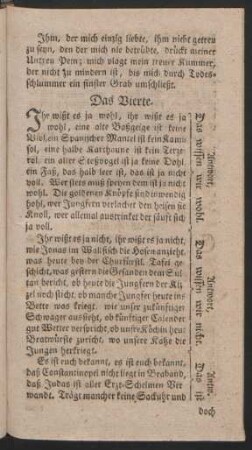 Ihm, der mich einzig liebte, Ihm nicht getreu
zu seyn, den der mich nie betrübte, drückt meiner
Untreu Pein; mich plagt mein treuer Kummer,
der nicht zu mindern ist, bis mich durch Todes-
schlummer ein finster Grab umschließt.
Das Vierte.
Ihr wißt es ja wohl, ihr wißt es ja
wohl, eine alte Baßgeige ist keine
Viol, ein Spanischer Mantel ist kein Kami-
sol, eine halbe Karthaune ist kein Terze-
rol, ein alter Stoßvogel ist ja keine Dohl,
ein Faß, das halb leer ist, das ist ja nicht
voll. Wer stets muß sporen dem ist ja nicht
wohl. Die goldenen Knöpfe sind inwendig
hohl, wer Jungfern verlachet den heissen
Knoll, wer allemal austrinket der säuft sich
ja voll.
Ihr wißt es ja nicht, ihr wißt es ja nicht,
wie Jonas im Wallfisch die Hosen anzieht,
was heute bey der Churfürstl. Tafel ge-
schicht, was gestern die Gesandten dem Sul-
tan bericht, ob heute die Jungfern der Kü-
zel noch sticht, ob manche Jungfer heute ins
Bette was kriegt, wie unser zukünftiger
Schwager aussieht, ob künftiger Calender
gut Wetter verspricht, ob unsre Köchin heut
Bratwürste zuricht, wo unsere Katze die
Jungen herkriegt.
Es ist euch bekannt, es ist euch bekannt,
daß Constantinopel nicht liegt in Braband,
daß Judas ist aller Ertz-Schelmen Ver-
wandt. Trägt mancher keine Sackuhr und
doch
Antwort.
Das wissen wir wohl.
Antwort.
Das wissen wir nicht.
Antw.
Das ist